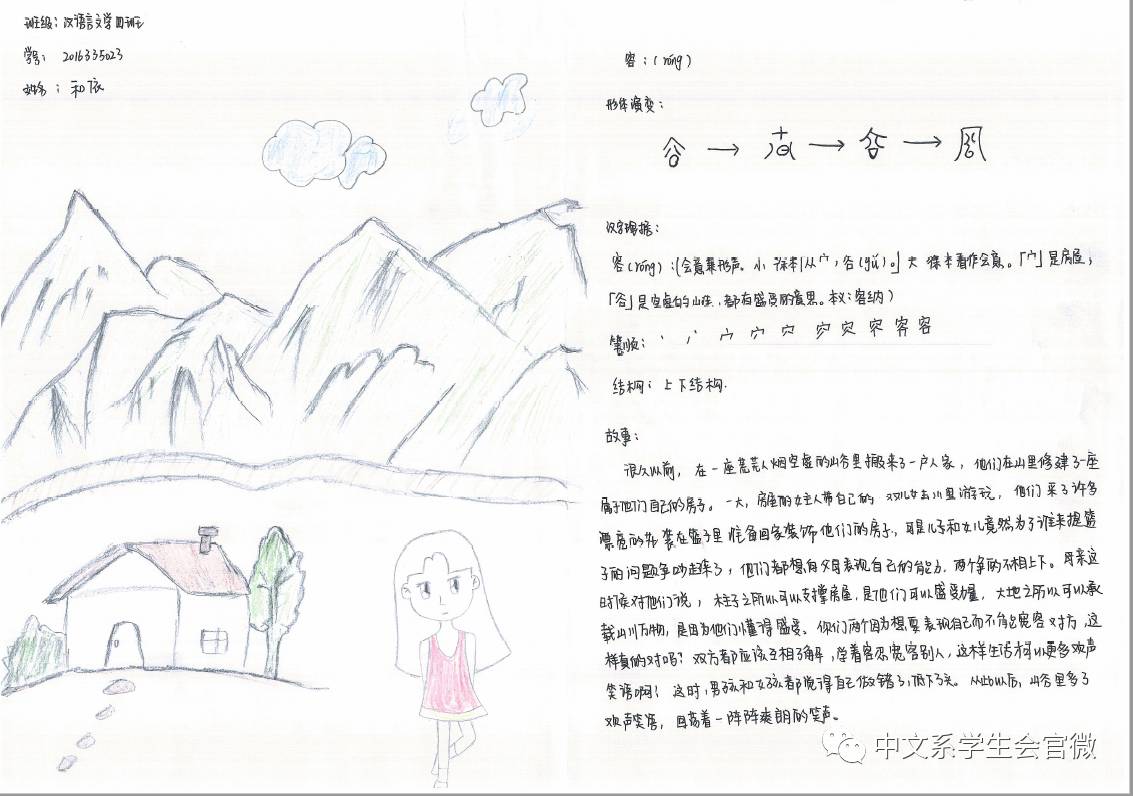 班级：汉语言文学四班
学号： 2016335023
姓名：和依
容：(róng)
形体演变：
汉字理据：
容(róng)：(会意兼形声。小篆从宀，谷(yǔ)。大徐本看作会意。「宀」是房屋，
「谷」是空虚的山洼，都有盛受的意思。本义：容纳)
笔顺：
结构：上下结构.
故事：
很久以前，在一座荒芜人烟空虚的山谷里搬来了一户人家，他们在山里修建了一座
属于他们自己的房子。一天，房屋的女主人带自己的双儿女去山里游玩，他们采了许多
漂亮的花装在篮子里准备回家装饰他们的房子，可是儿子和女儿竟然为了谁来提篮
子的问题争吵起来了，他们都想向父母表现自己的能力，两个争的不相上下。母亲这
时候对他们说，柱子之所以可以支撑房屋，是他们可以盛受力量，大地之所以可以承
载山川万物，是因为他们懂得盛受、你们两个因为想要表现自己而不能宽容对方，这
样真的对吗？双方都应该互相了解，学着容忍宽容别人，这样生活才可以更多欢声
笑语啊！这时，男孩和女孩都觉得自己做错了，低下了头。从此以后，山谷里多了
欢声笑语，回荡着一阵阵爽朗的笑声。
中文系学生会官微